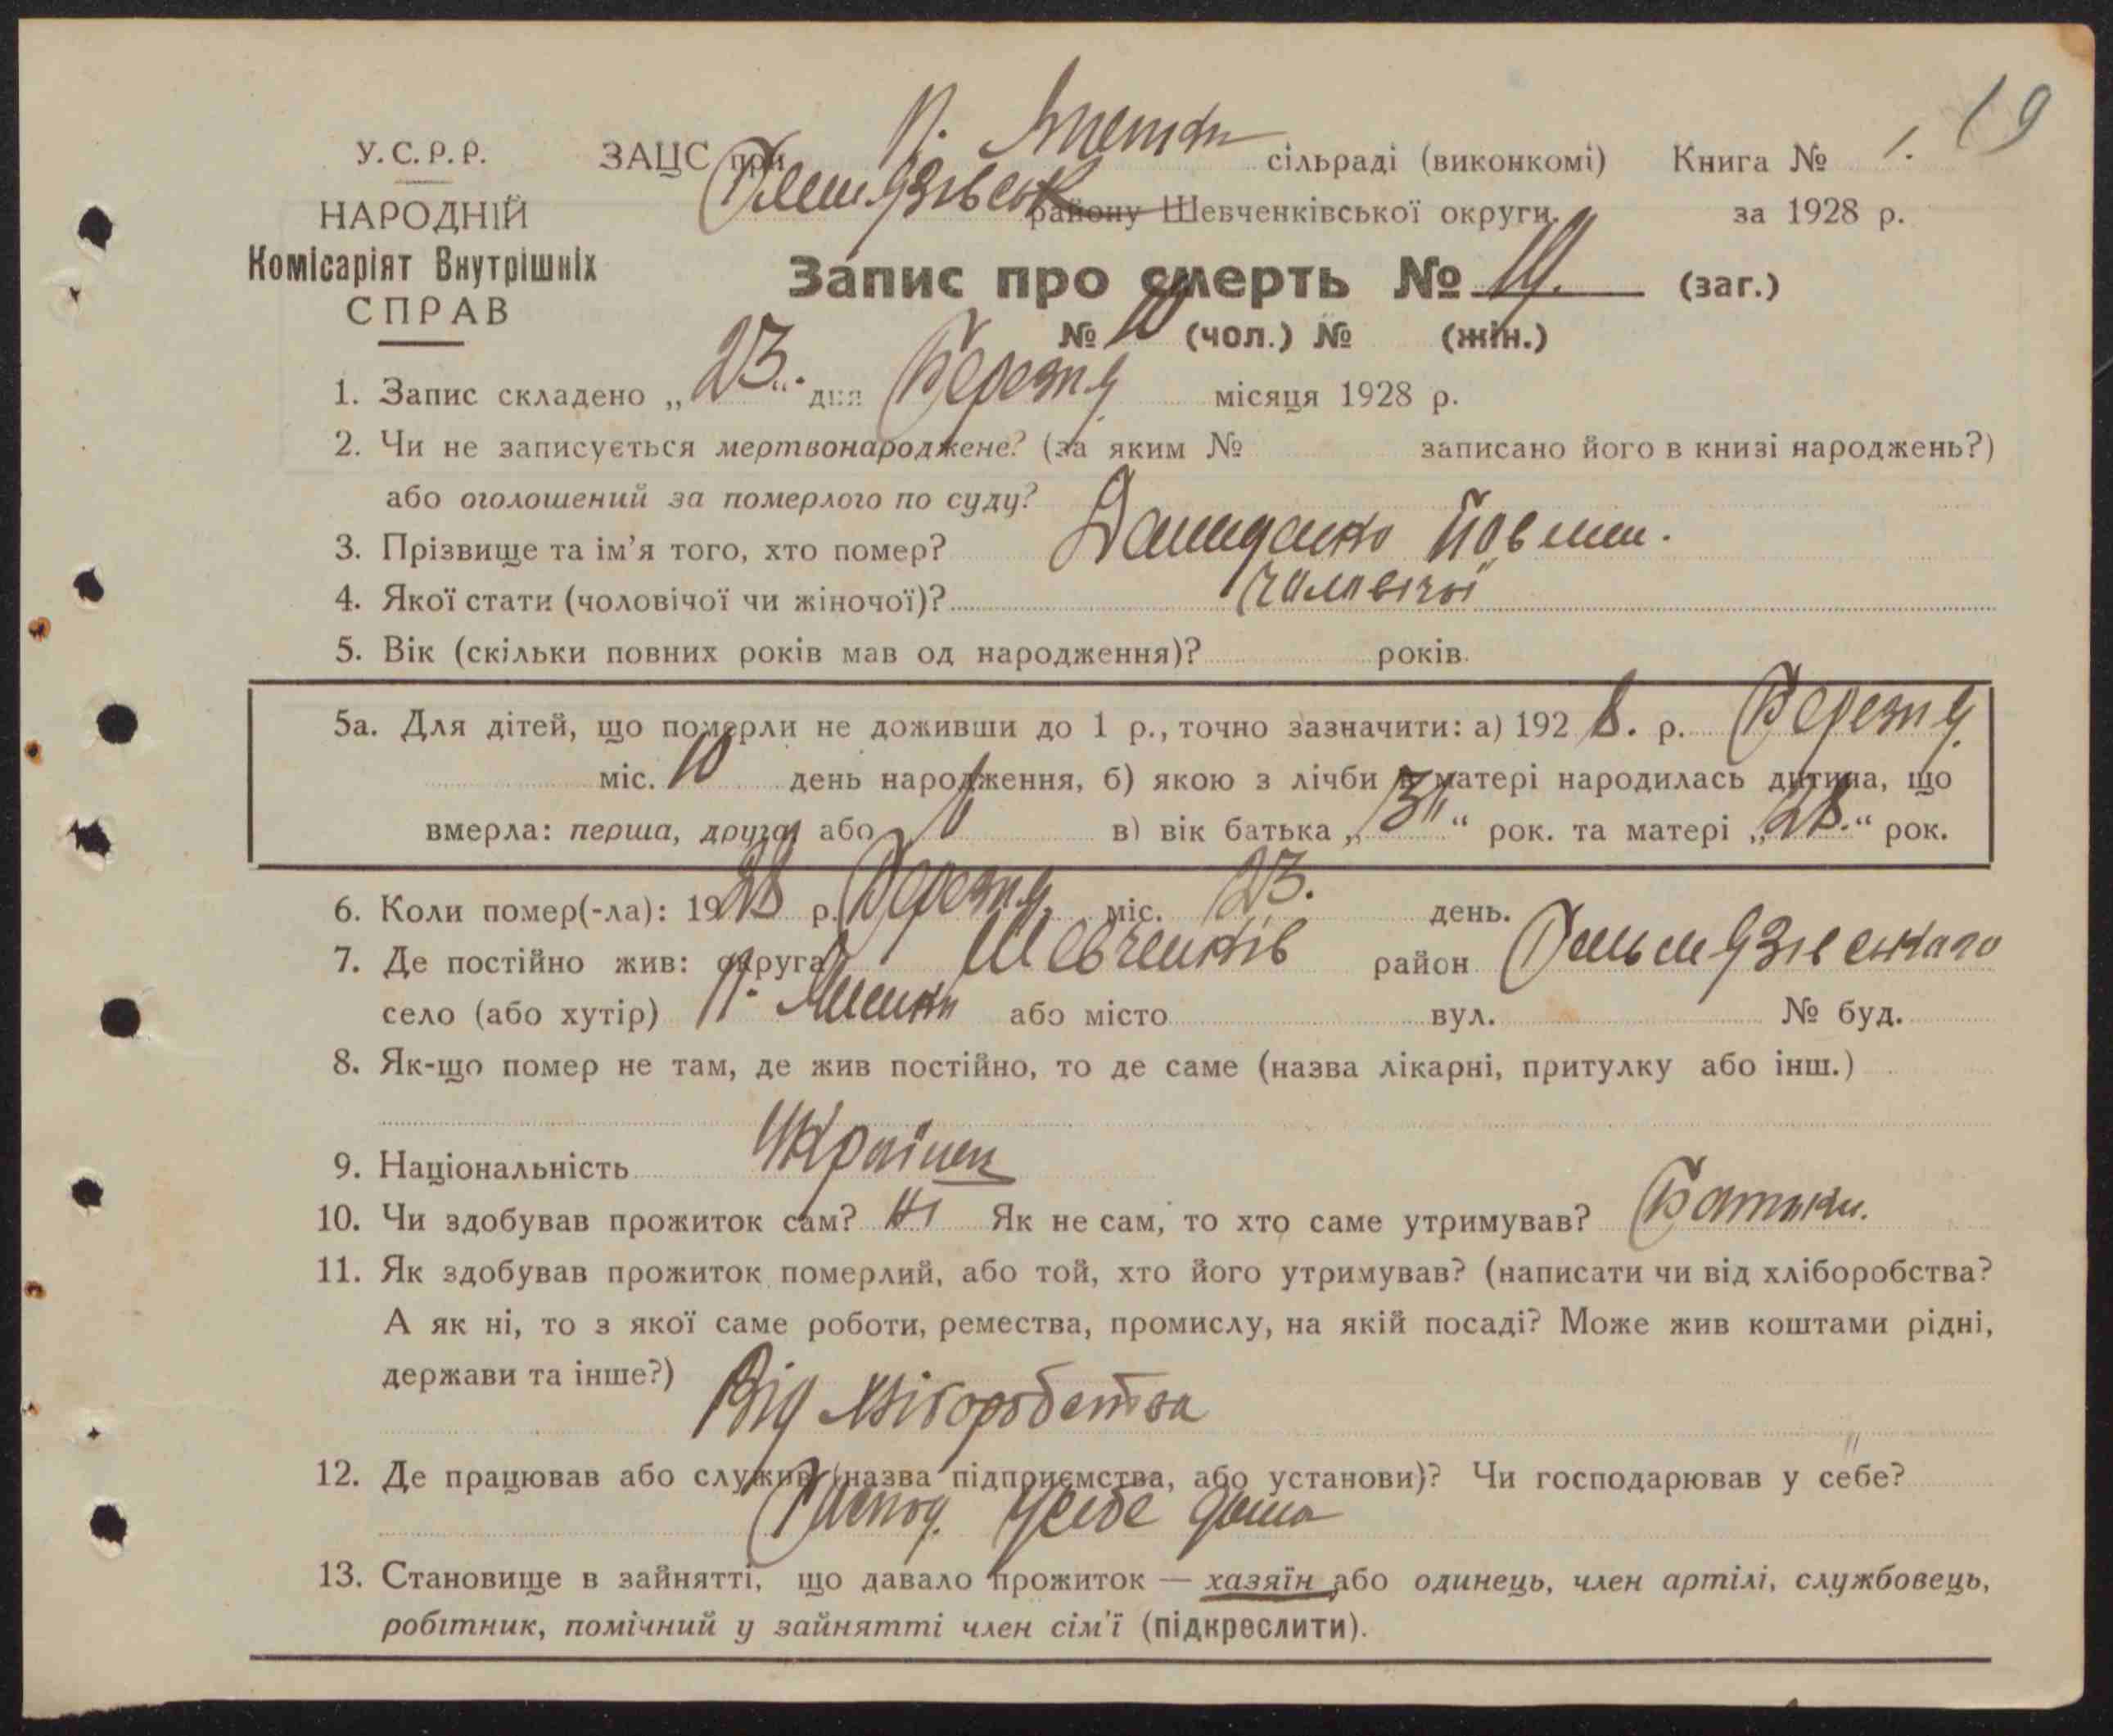 19
У.С.Р.Р. ЗАЦС при П. сільраді (виконкомі) Книга № 1.
НАРОДНІЙ району Шевченківської округи. за 1928 р.
Комісаріят Внутрішніх
СПРАВ
Запис про смерть № 19. (заг.)
№ 10 (чол.) № (жін.)
1. Запис складено „23.“ дня Березня місяця 1928 р.
2. Чи не записується мертвонароджене? (за яким № записано його в книзі народжень?)
або оголошений за померлого по суду?
3. Прізвище та ім’я того, хто помер?
4. Якої стати (чоловічої чи жіночої)? чоловічої
5. Вік (скільки повних років мав од народження)? років.
5а. Для дітей, що померли не доживши до 1 р., точно зазначити: а) 1928. р. Березня
міс. 10 день народження, б) якою з лічби в матері народилась дитина, що
вмерла: перша, друга, або в) вік батька „ “ рок. та матері „28.“ рок.
6. Коли помер(-ла): 1928 р. Березня міс. 23. день.
7. Де постійно жив: округа Шевченків район Гельмязівського
село (або хутір) П. або місто вул. № буд.
8. Як-що помер не там, де жив постійно, то де саме (назва лікарні, притулку або інш.)
9. Національність Українец
10. Чи здобував прожиток сам? Ні Як не сам, то хто саме утримував? Батьки.
11. Як здобував прожиток померлий, або той, хто його утримував? (написати чи від хліборобства?
А як ні, то з якої саме роботи, ремества, промислу, на якій посаді? Може жив коштами рідні,
держави та інше?) Від хліборобства
12. Де працював або служив (назва підприємства, або установи)? Чи господарював у себе?
Господ. у себе дома
13. Становище в зайнятті, що давало прожиток — хазяїн або одинець, член артілі, службовець,
робітник, помічний у зайнятті член сім’ї (підкреслити).